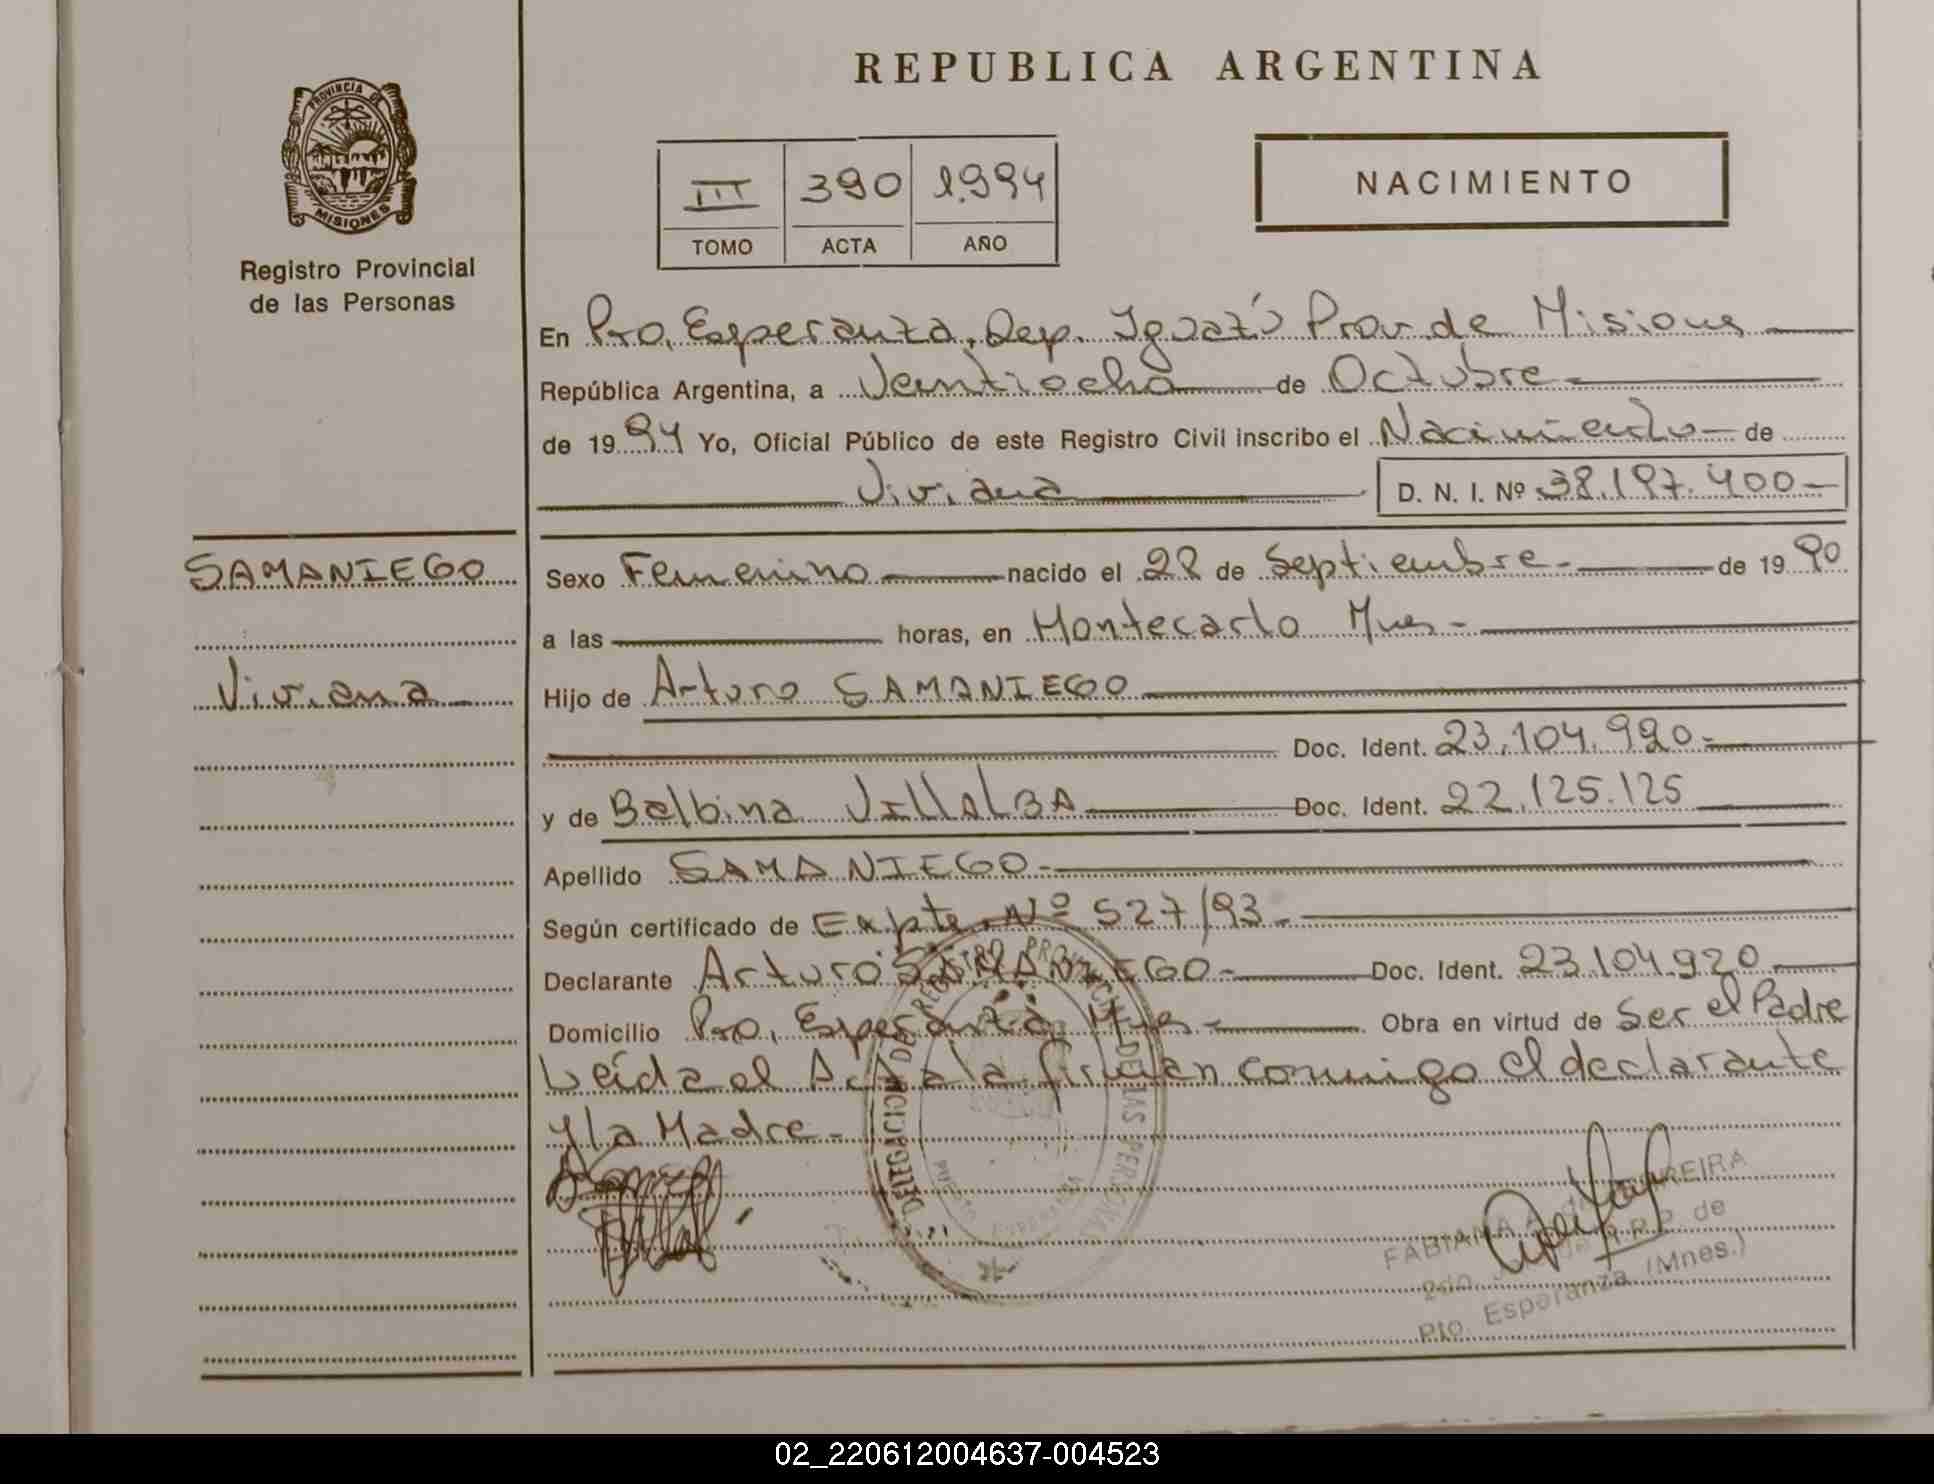 REPUBLICA ARGENTINA
PROVINCIA DE
MISIONES
Registro Provincial
de las Personas
III 390 1.994
TOMO ACTA AÑO
NACIMIENTO
En Pto, Esperanza, Dep. Iguazú Prov. de Misiones
República Argentina, a Veintiocho de Octubre
de 1994 Yo, Oficial Público de este Registro Civil inscribo el Nacimiento de
Viviana D. N. I. Nº 38.197.400
SAMANIEGO
Viviana
Sexo Femenino nacido el 28 de Septiembre de 1990
a las horas, en Montecarlo Mnes
Hijo de Arturo SAMANIEGO
Doc. Ident. 23.104.920
y de Balbina VILLALBA Doc. Ident. 22.125.125
Apellido SAMANIEGO
Según certificado de Expte. Nº 527/93
Declarante Arturo SAMANIEGO Doc. Ident. 23.104.920
Domicilio Pto, Esperanza Mnes Obra en virtud de Ser el Padre
Leída el Acta la firman conmigo el declarante
y la Madre
DELEGACION DE REGISTRO PROVINCIAL DE LAS PERSONAS
PUERTO ESPERANZA
FABIANA PEREIRA
2do R.P.P. de
Pto. Esperanza (Mnes.)
02_220612004637-004523